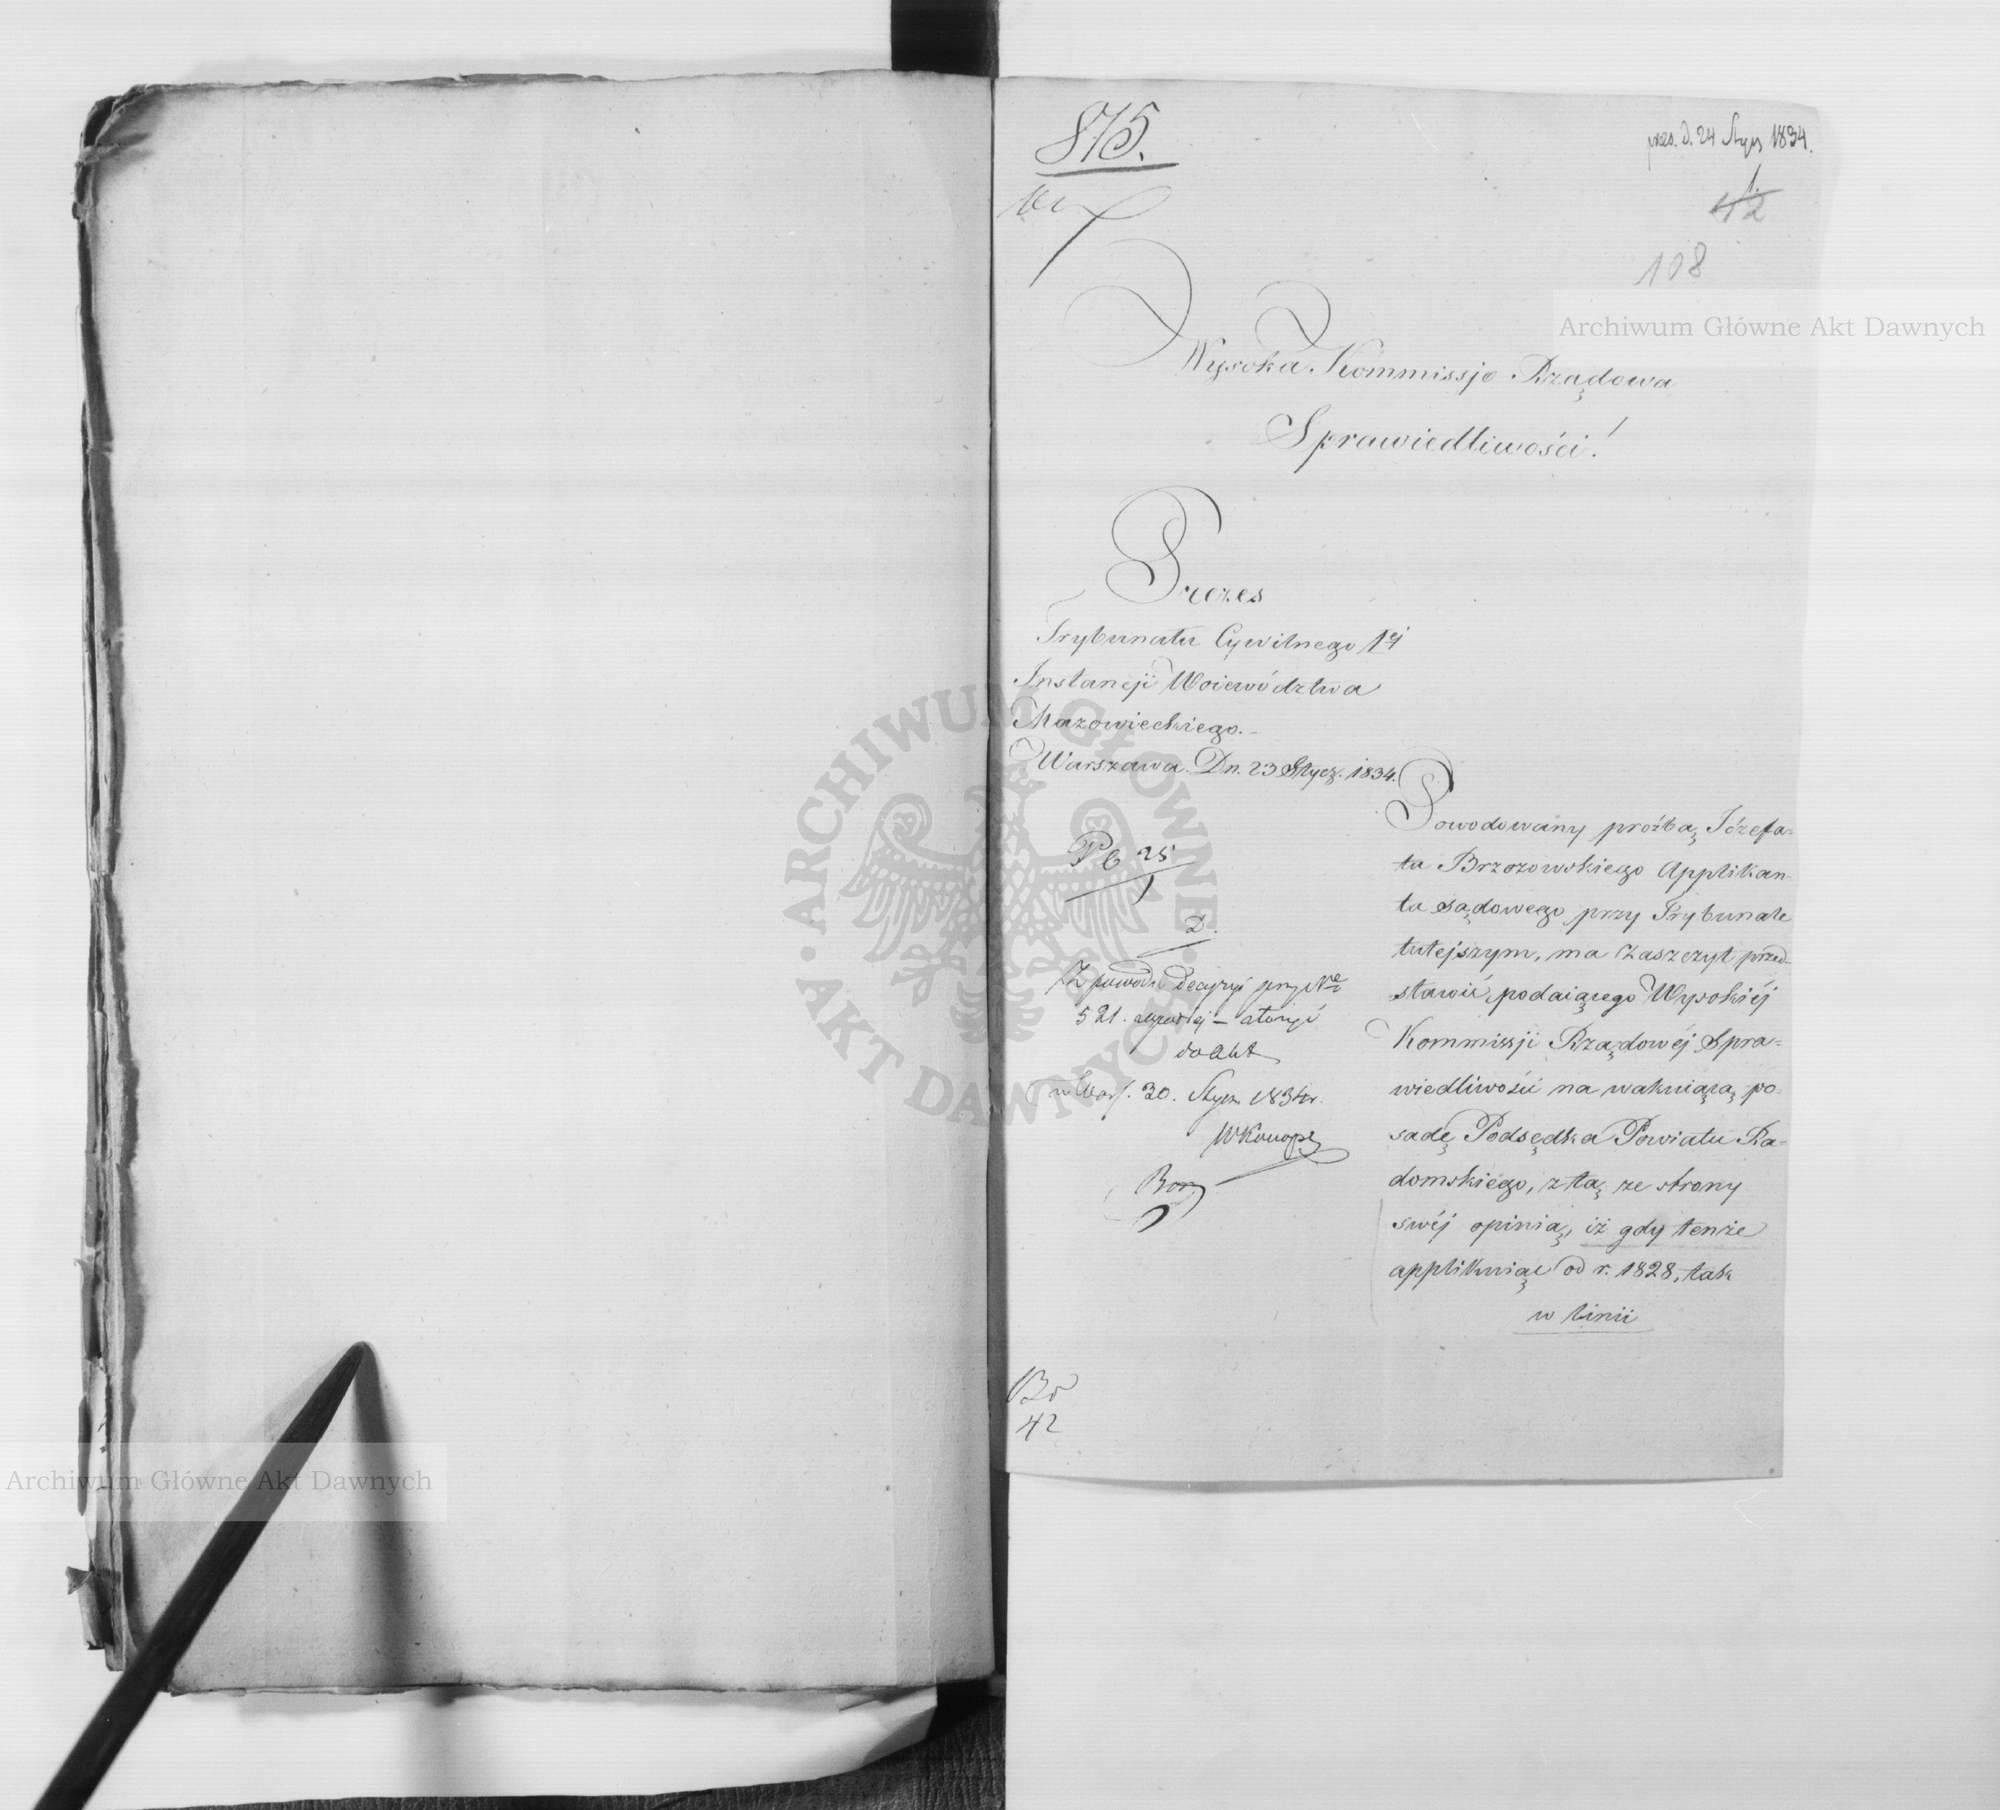 875.
prez. d. 24 Stycz 1834.
1.
42
108
Archiwum Główne Akt Dawnych
Wysoka Kommissjo Rządowa
Sprawiedliwości!
Prezes
Trybunału Cywilnego 1ej
Instancji Woiewództwa
Mazowieckiego.-
Warszawa Dn. 23 Stycz. 1834.
Pb 25
2.
Z powodu decyzyi przy Nrze
521. - złożyć
do akt
w Wars. 30. Stycz. 1834r.
Powodowany proźbą Józefa-
ta Brzozowskiego Applikan-
ta sądowego przy Trybunale
tutejszym, ma zaszczyt przed-
stawić podaiącego Wysokiéj
Kommissji Rządowéj Spra-
wiedliwości na wakuiącą po-
sadę Podsędka Powiatu Ra-
domskiego, z tą ze strony
swéj opinią, iż gdy tenże
applikuiąc od r. 1828, tak
w linii
42
Archiwum Główne Akt Dawnych
ARCHIWUM GŁÓWNE AKT DAWNYCH